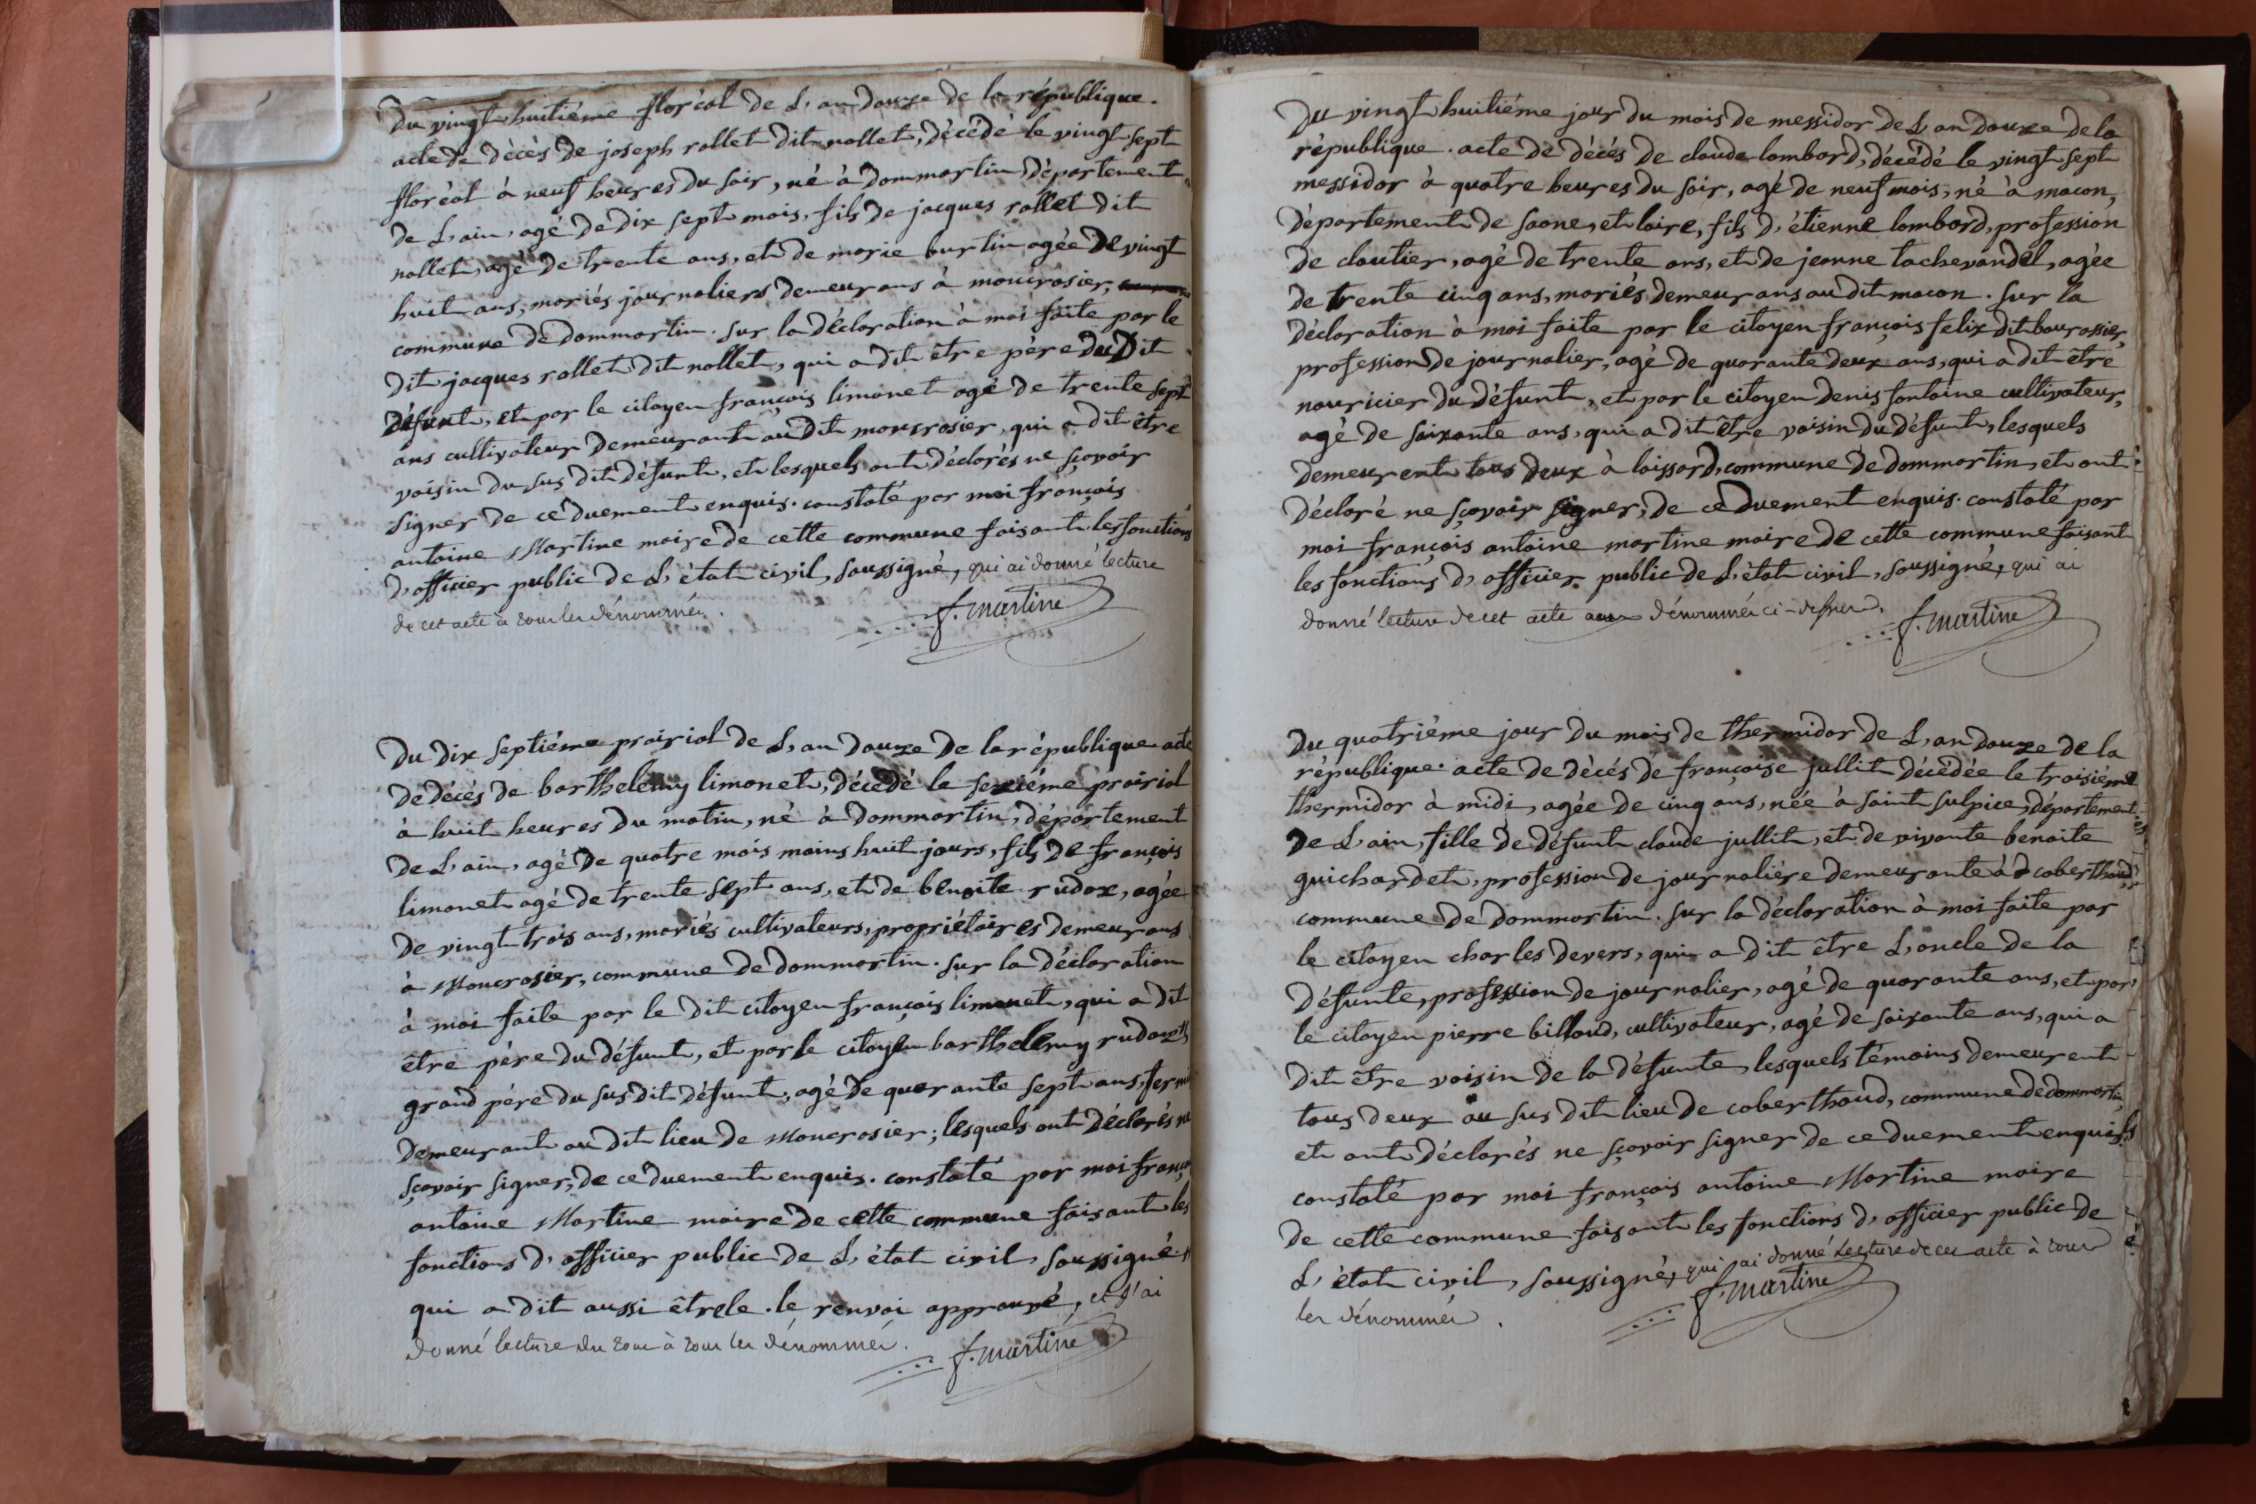 Du vingt huitiéme floréal de L'an douze de la république.
acte de décès de joseph rollet dit nollet, décédé le vingt sept
floréal à neuf heures du soir, né à dommartin département
de L'ain, agé de dix sept mois, fils de jacques rollet dit
nollet, agé de trente ans, et de marie burtin agée de vingt
huit ans, mariés journaliers demeurans à moncrosier,
commune de dommartin. sur la déclaration à moi faite par le
dit jacques rollet dit nollet, qui a dit être père du Dit
défunt, et par le citoyen françois limonet agé de trente sept
ans cultivateur demeurant au dit moncrosier, qui a dit être
voisin du sus dit défunt, et lesquels ont déclarés ne sçavoir
signer de ce duement enquis. constaté par moi françois
antoine Martine maire de cette commune faisant les fonctions
d'officier public de L'état civil, soussigné, qui ai donné lecture
de cet acte à tous les dénommés.
f. martine
Du dix septiéme prairial de L'an douze de la république acte
de décés de barthelemy limonet, décédé le seziéme prairial
à huit heures du matin, né à dommartin, département
de L'ain, agé de quatre mois moins huit jours, fils de françois
limonet agé de trente sept ans, et de benoite rudoz, agée
de vingt trois ans, mariés cultivateurs, propriétaires demeurans
à Moncrosier, commune de dommartin. sur la déclaration
à moi faite par le dit citoyen françois limonet, qui a dit
être père du défunt, et par le citoyen barthelemy rudoz,
grand père du sus dit défunt, agé de quarante sept ans,
demeurant au dit lieu de Moncrosier; lesquels ont déclarés ne
sçavoir signer, de ce duement enquis. constaté par moi françois
antoine Martine maire de cette commune faisant les
fonctions d'officier public de L'état civil, soussigné
qui a dit aussi être le. le renvoi approuvé, et j'ai
donné lecture du tout à tous les dénommés.
f. martine
Du vingt huitiéme jour du mois de messidor de L'an douze de la
république. acte de décés de claude lombard, décédé le vingt sept
messidor à quatre heures du soir, agé de neuf mois, né à macon,
département de saone, et loire, fils d'étienne lombard, profession
de cloutier, agé de trente ans, et de jeanne tachevandel, agée
de trente cinq ans, mariés demeurans au dit macon. sur la
déclaration à moi faite par le citoyen françois felix dit bourassier,
profession de journalier, agé de quarante deux ans, qui a dit être
nouricier du défunt, et par le citoyen denis fontaine cultivateur,
agé de soixante ans, qui a dit être voisin du défunt, lesquels
demeurent tous deux à loissard, commune de dommartin, et ont
déclaré ne sçavoir signer, de ce duement enquis. constaté par
moi françois antoine martine maire de cette commune faisant
les fonctions d'officier public de L'état civil, soussigné, qui ai
donné lecture de cet acte aux dénommés ci-dessus.
f. martine
Du quatriéme jour du mois de thermidor de L'an douze de la
république. acte de décès de françoise jullit décédée le troisieme
thermidor à midi, agée de cinq ans, née à saint sulpice, département
de L'ain, fille de défunt claude jullit, et de vivante benoite
guichardet, profession de journalière demeurante à coberthoud,
commune de dommartin. sur la déclaration à moi faite par
le citoyen charles devers, qui a dit être L'oncle de la
défunte, profession de journalier, agé de quarante ans, et par
le citoyen pierre billoud, cultivateur, agé de soixante ans, qui a
dit être voisin de la défunte, lesquels témoins demeurent
tous deux au sus dit lieu de coberthoud, commune de dommartin,
et ont déclarés ne sçavoir signer de ce duement enquis
constaté par moi françois antoine Martine maire
de cette commune faisant les fonctions d'officier public de
L'état civil, soussigné, qui ai donné Lecture de cet acte à tous
les dénommés.
f. martine